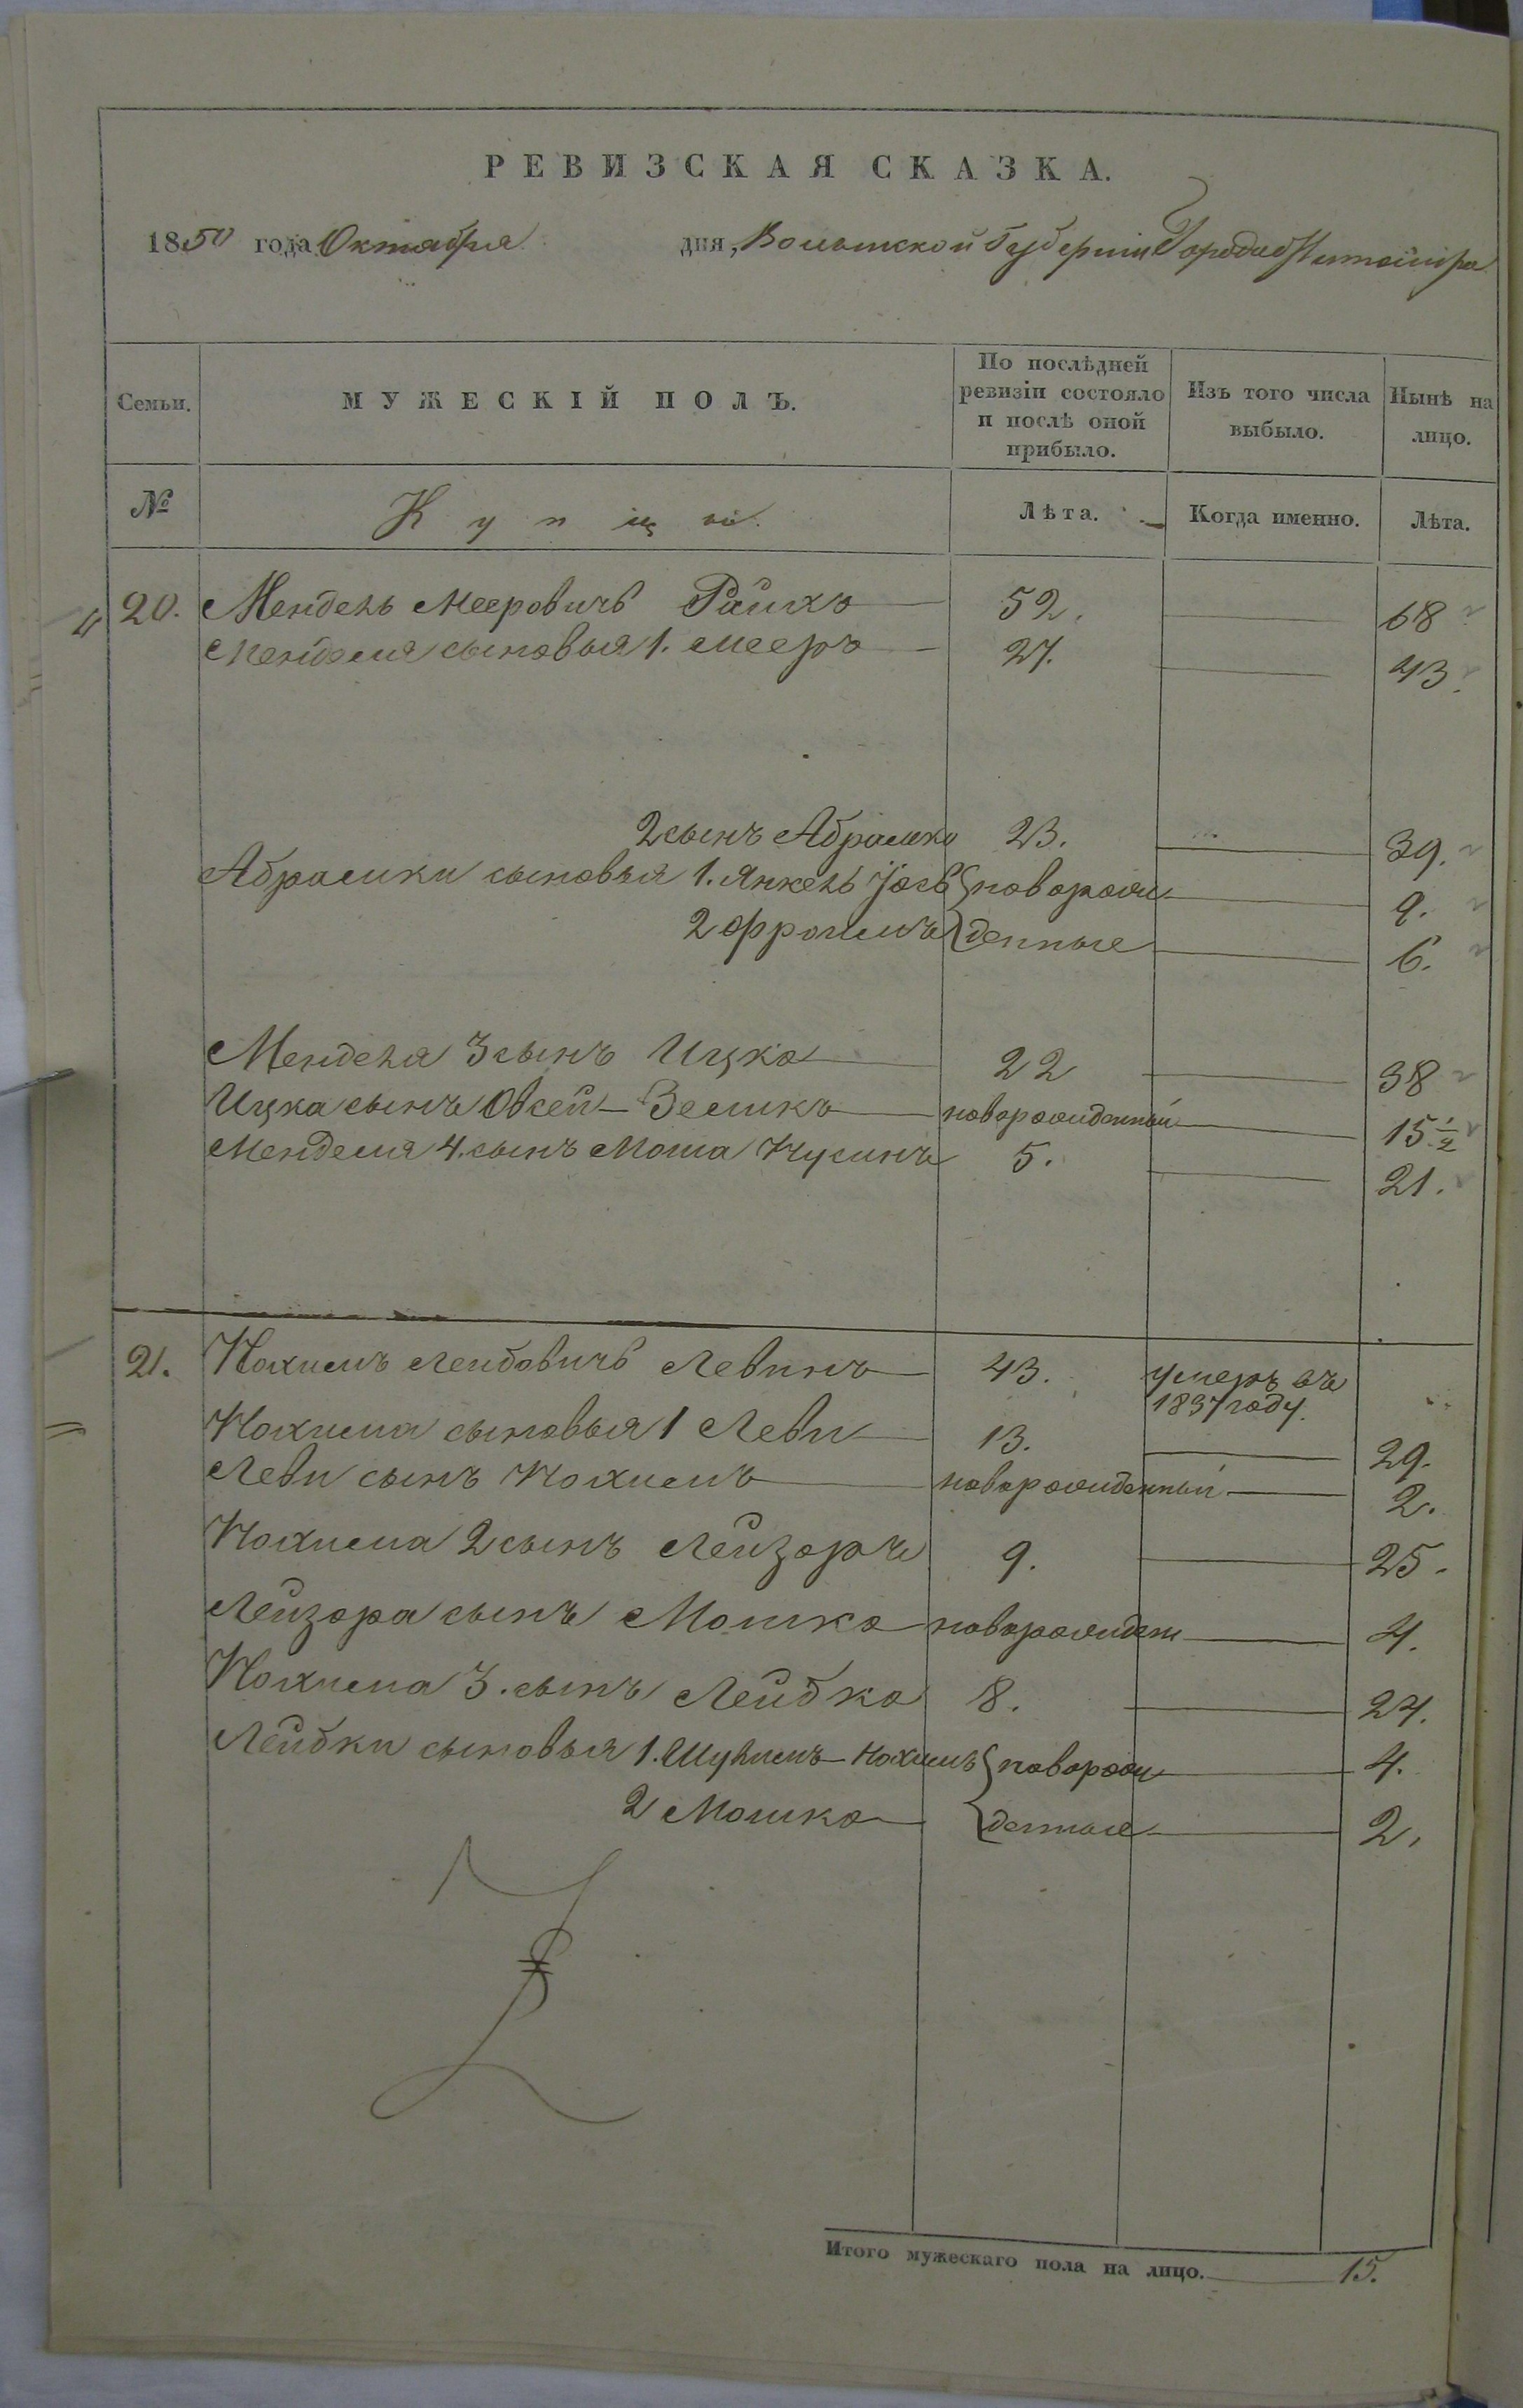 РЕВИЗСКАЯ СКАЗКА.
1850 года Октября дня, Волынской Губерніи Города Житомира
Семьи. МУЖЕСКІЙ ПОЛЪ. По послѣдней ревизіи состояло и послѣ оной прибыло. Изъ того числа выбыло. Нынѣ на лицо.
№ Купцы. Лѣта. Когда именно. Лѣта.
20. Мендель Мееровичъ Райхъ 52. 68
Менделя сыновья 1. Мееръ 27. 43.
2 сынъ Абрамко 23. 39.
Абрамки сыновья 1. Янкель Іось новорож 9.
2 Фроимъ денные 6.
Менделя 3 сынъ Ицко 22 38
Ицка сынъ Овсей-Зеликъ новорожденный 15 1/2
Менделя 4. сынъ Мошка 5. 21.
21. Нохимъ Лейбовичъ Левинъ 43. умеръ въ
1837 году.
Нохима сыновья 1 Леви 13. 29.
Леви сынъ Нохимъ новорожденный 2.
Нохима 2 сынъ Лейзоръ 9. 25.
Лейзора сынъ Мошко новорожден 4.
Нохима 3. сынъ Лейбко 8. 24.
Лейбки сыновья 1. Шулимъ-Нохимъ новорож 4.
2 Мошко денные 2.
Итого мужескаго пола на лицо. 15.